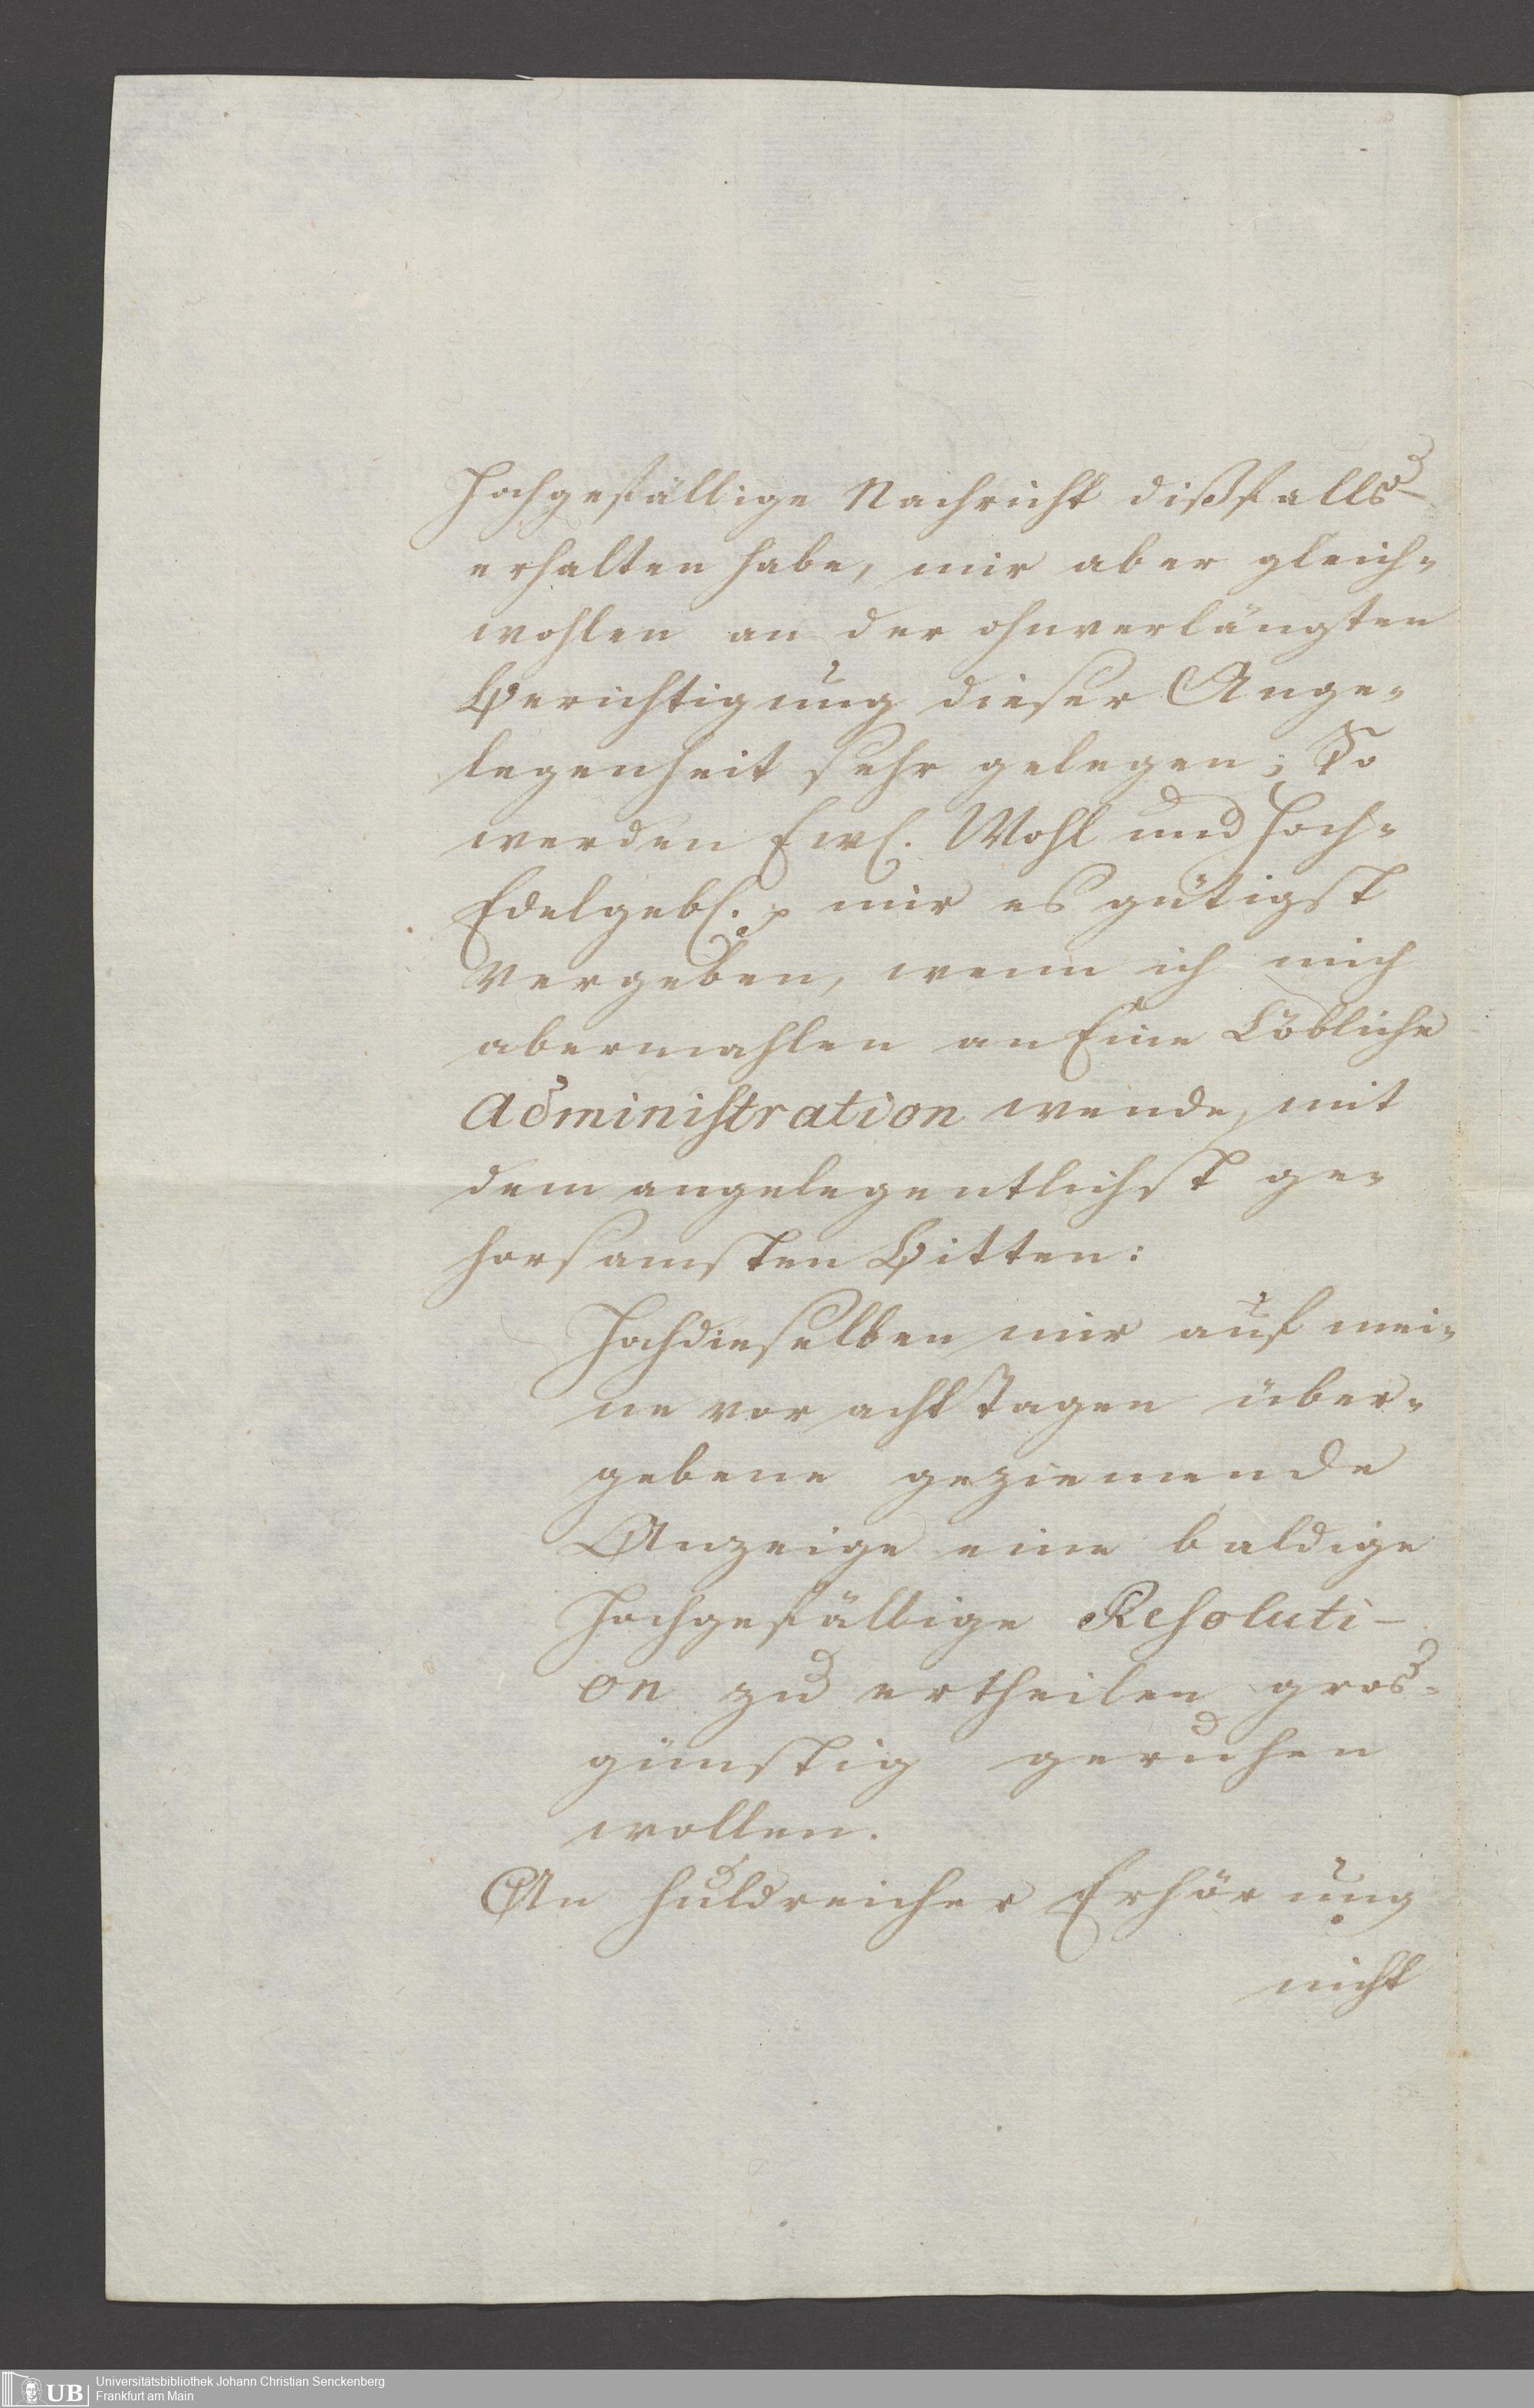 hochgefällige Nachricht dißfalls
erhalten habe, mir aber gleich-
wohlen an der ohnverlängten
Berichtigung dieser Ange-
legenheit sehr gelegen; So
werden Ewl. Wohl und Hoch-
Edelgebl. p mir es gütigst
vergeben, wenn ich mich
abermahlen an Eine Löbliche
Administration wende, mit
dem angelegentlichst ge-
horsamsten Bitten:
Hochdieselben mir auf mei-
ne vor acht Tagen über-
gebene geziemende
Anzeige eine baldige
hochgefällige Resoluti-
on zu ertheilen gros-
günstig geruhen
wollen.
An huldreicher Erhörung
nicht
UB
Universitätsbibliothek Johann Christian Senckenberg
Frankfurt am Main